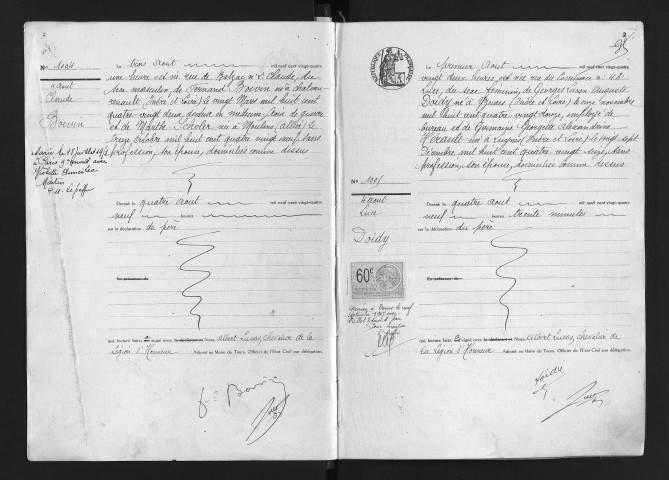 No 1004
4 Août
Claude
Boivin
Le trois Août mil neuf cent vingt-quatre
une heure est né rue de Balzac no 2 Claude, du
sexe masculin, de Fernand Boivin né à Château-
renault (Indre et Loire) le vingt Mars mil huit cent
quatre vingt deux, docteur en médecine, Croix de guerre
et de Marthe Scholer née à Moulins (Allier) le
treize Octobre mil huit cent quatre vingt neuf, sans
profession, son épouse, domiciliés comme dessus
Marié le 18 Juillet
à Paris avec
Martin
Dressé le quatre Août mil neuf cent vingt-quatre
neuf heures
sur la déclaration du père
En présence de
qui, lecture faite, a signé avec le déclarant Nous, Albert Lucas, chevalier de la
Légion d'Honneur Adjoint au Maire de Tours, Officier de l'État Civil par délégation.
F. Boivin
Le premier Août mil neuf cent vingt-quatre
vingt deux heures, est née rue du no 42
Luce, du sexe féminin, de Georges Lucien Auguste
Doidy né à (Indre et Loire) le onze novembre
mil huit cent quatre vingt douze, employé de
bureau et de Germaine Georgette Alexandrine
née à (Indre et Loire) le vingt sept
mil huit cent quatre vingt seize, sans
profession, son épouse, domiciliés comme dessus
No 1005
4 Août
Luce
Doidy
Dressé le quatre Août mil neuf cent vingt-quatre
neuf heures trente minutes
sur la déclaration du père
En présence de
60c
Mariée à Tours le neuf
qui, lecture faite, a signé avec le déclarant Nous, Albert Lucas, chevalier de
la Légion d'Honneur Adjoint au Maire de Tours, Officier de l'État Civil par délégation.
Doidy